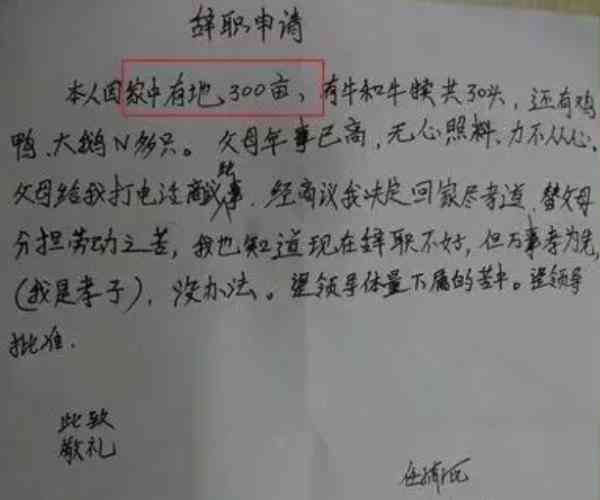 辞职申请
本人因家中有地300亩、有牛和牛犊共30头，还有鸡
鸭、大鹅N多只。父母年事已高，无心照料、力不从心。
父母给我打电话商议此事，经商议我决定回家尽孝道，替父母
分担劳动之苦，我也知道现在辞职不好，但万事孝为先，
(我是孝子)，没办法。望领导体量下属的苦中。望领导
批准.
此致
敬礼